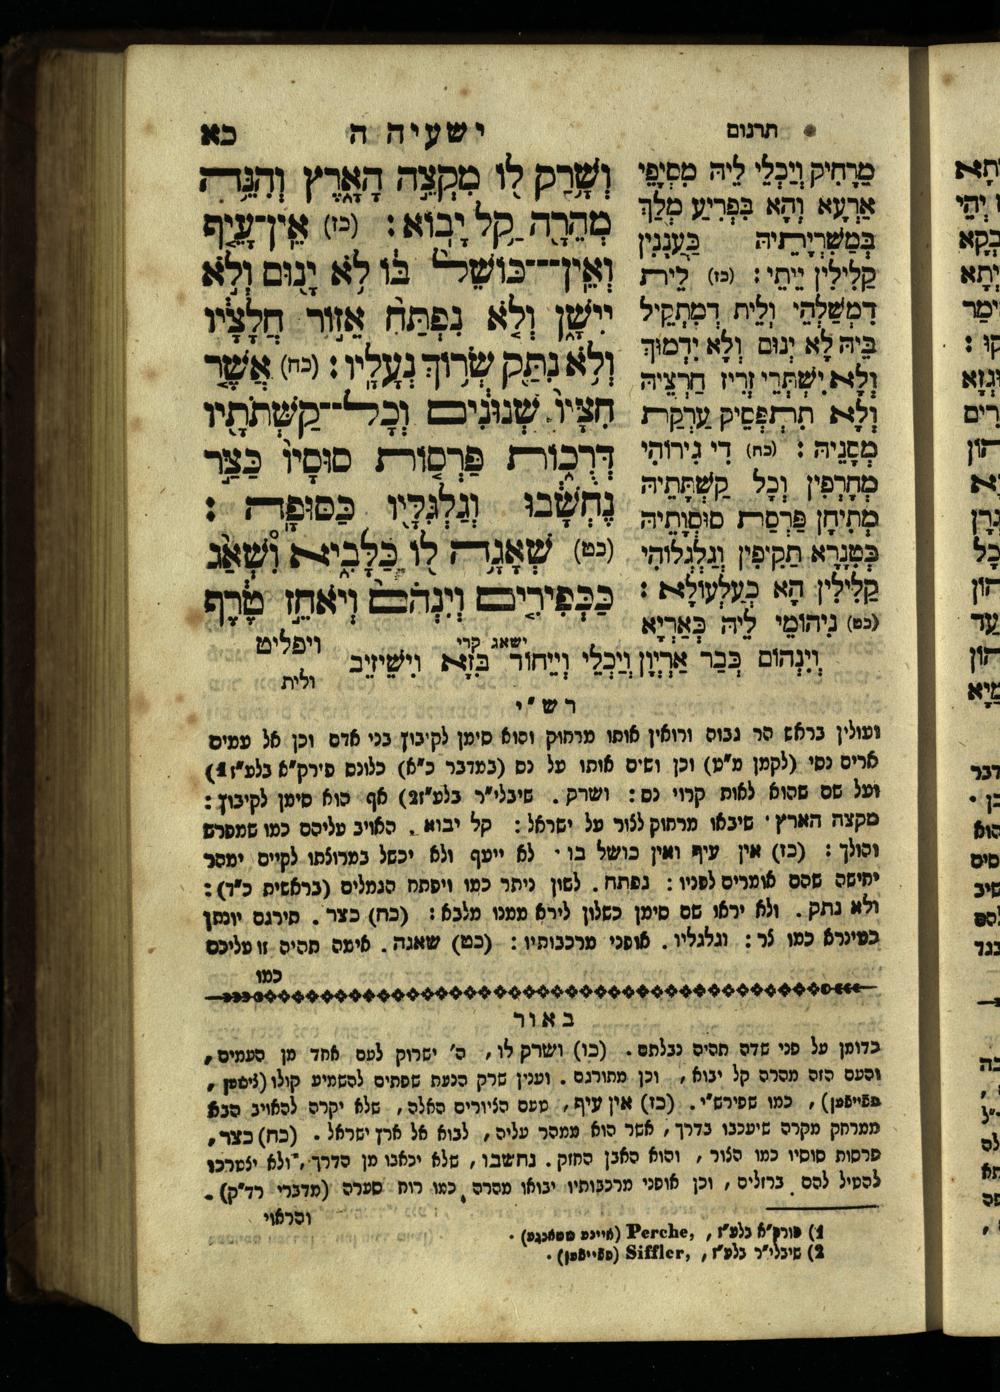 תרגום
ישעיה ה
כא
וְשָׁרַק לוֹ מִקְצֵה הָאָרֶץ וְהִנֵּה
מְהֵרָה קַל יָבוֹא׃ (כז) אֵין־עָיֵף
וְאֵין־כּוֹשֵׁל בּוֹ לֹא יָנוּם וְלֹא
יִישָׁן וְלֹא נִפְתַּח אֵזוֹר חֲלָצָיו
וְלֹא נִתַּק שְׂרוֹךְ נְעָלָיו׃ (כח) אֲשֶׁר
חִצָּיו שְׁנוּנִים וְכָל־קַשְּׁתֹתָיו
דְּרֻכוֹת פַּרְסוֹת סוּסָיו כַּצַּר
נֶחְשָׁבוּ וְגַלְגִּלָּיו כַּסּוּפָה׃
(כט) שְׁאָגָה לוֹ כַּלָּבִיא וְשָׁאַג
כַּכְּפִירִים וְיִנְהֹם וְיֹאחֵז טֶרֶף
ישאג קרי
ויפליט
מֵרָחִיק וְיַכְלֵי לֵיהּ מִסְיָפֵי
אַרְעָא וְהָא בִּפְרִיעַ מֶלֶךְ
בְּמַשִׁרְיָתֵיהּ כַּעֲנָנִין
קַלִילִין יֵיתֵי׃ (כז) לֵית
דִמְשַׁלְהֵי וְלֵית דְמִתְקֵיל
בֵּיהּ לָא יְנוּם וְלָא יִדְמוּךְ
וְלָא יִשְׁתְּרֵי זְרִיז חַרְצֵיהּ
וְלָא תִתְפְּסֵיק עַרְקַת
מְסָנֵיהּ׃ (כח) דִי גִירוֹהִי
מְחָרְפִין וְכָל קַשְׁתָּתֵיהּ
מְתִיחָן פַּרְסַת סוּסְוָתֵיהּ
כְּטִנָרָא תַקִיפִין וְגַלְגְלוֹהִי
קַלִילִין הָא כְעַלְעוֹלָא׃
(כט) נִיהוֹמֵי לֵיהּ כְּאַרְיָא
וְיִנְהוֹם כְּבַר אַרְיְוָן וְיַכְלֵי וְיֵיחוֹד בִּזָא וִישֵׁיזֵיב
ולית
רש״י
ועולין בראש הר גבוה ורואין אותו מרחוק והוא סימן לקיבוץ בני אדם וכן אל עמים
ארים נסי (לקמן מ״ט) וכן ושים אותו על נס (במדבר כ״א) כלונס פירק״א בלע״ז 1)
ועל שם שהוא לאות קרוי נס׃ ושרק. שיבלי״ר בלע״ז 2) אף הוא סימן לקיבוץ׃
מקצה הארץ. שיבאו מרחוק לצור על ישראל׃ קל יבוא. האויב עליהם כמו שמפרש
והולך׃ (כז) אין עיף ואין כושל בו. לא ייעף ולא יכשל במרוצתו לקיים ימהר
יחישה שהם אומרים לפניו׃ נפתח. לשון ניתר כמו ויפתח הגמלים (בראשית כ״ד)׃
ולא נתק. ולא יראו שם סימן כשלון לירא ממנו מלבא׃ (כח) כצר. תירגם יונתן
כטינרא כמו צר׃ וגלגליו. אופני מרכבותיו׃ (כט) שאגה. אימה תהיה זו עליכם
כמו
באור
כדומן על פני שדה תהיה נבלתם. (כו) ושרק לו, ה׳ ישרוק לעם אחד מן העמים,
והעם הזה מהרה קל יבוא, וכן מתורגם. וענין שרק הנעת שפתים להשמיע קולו (ציסען,
פפייפען), כמו שפירש״י. (כז) אין עיף, טעם הציורים האלה, שלא יקרה להאויב הבא
ממרחק מקרה שיעכבו בדרך, אשר הוא ממהר עליה, לבוא אל ארץ ישראל. (כח) כצר,
פרסות סוסיו כמו הצור, והוא האבן החזק. נחשבו, שלא יכאבו מן הדרך, ולא יצטרכו
להטיל להם ברזלים, וכן אופני מרכבותיו יבואו מהרה כמו רוח סערה (מדברי רד״ק).
והראוי
1) פורק״א בלע״ז, Perche, (איינע שטאנגע).
2) שיבלי״ר בלע״ז, Siffler, (פפייפען).